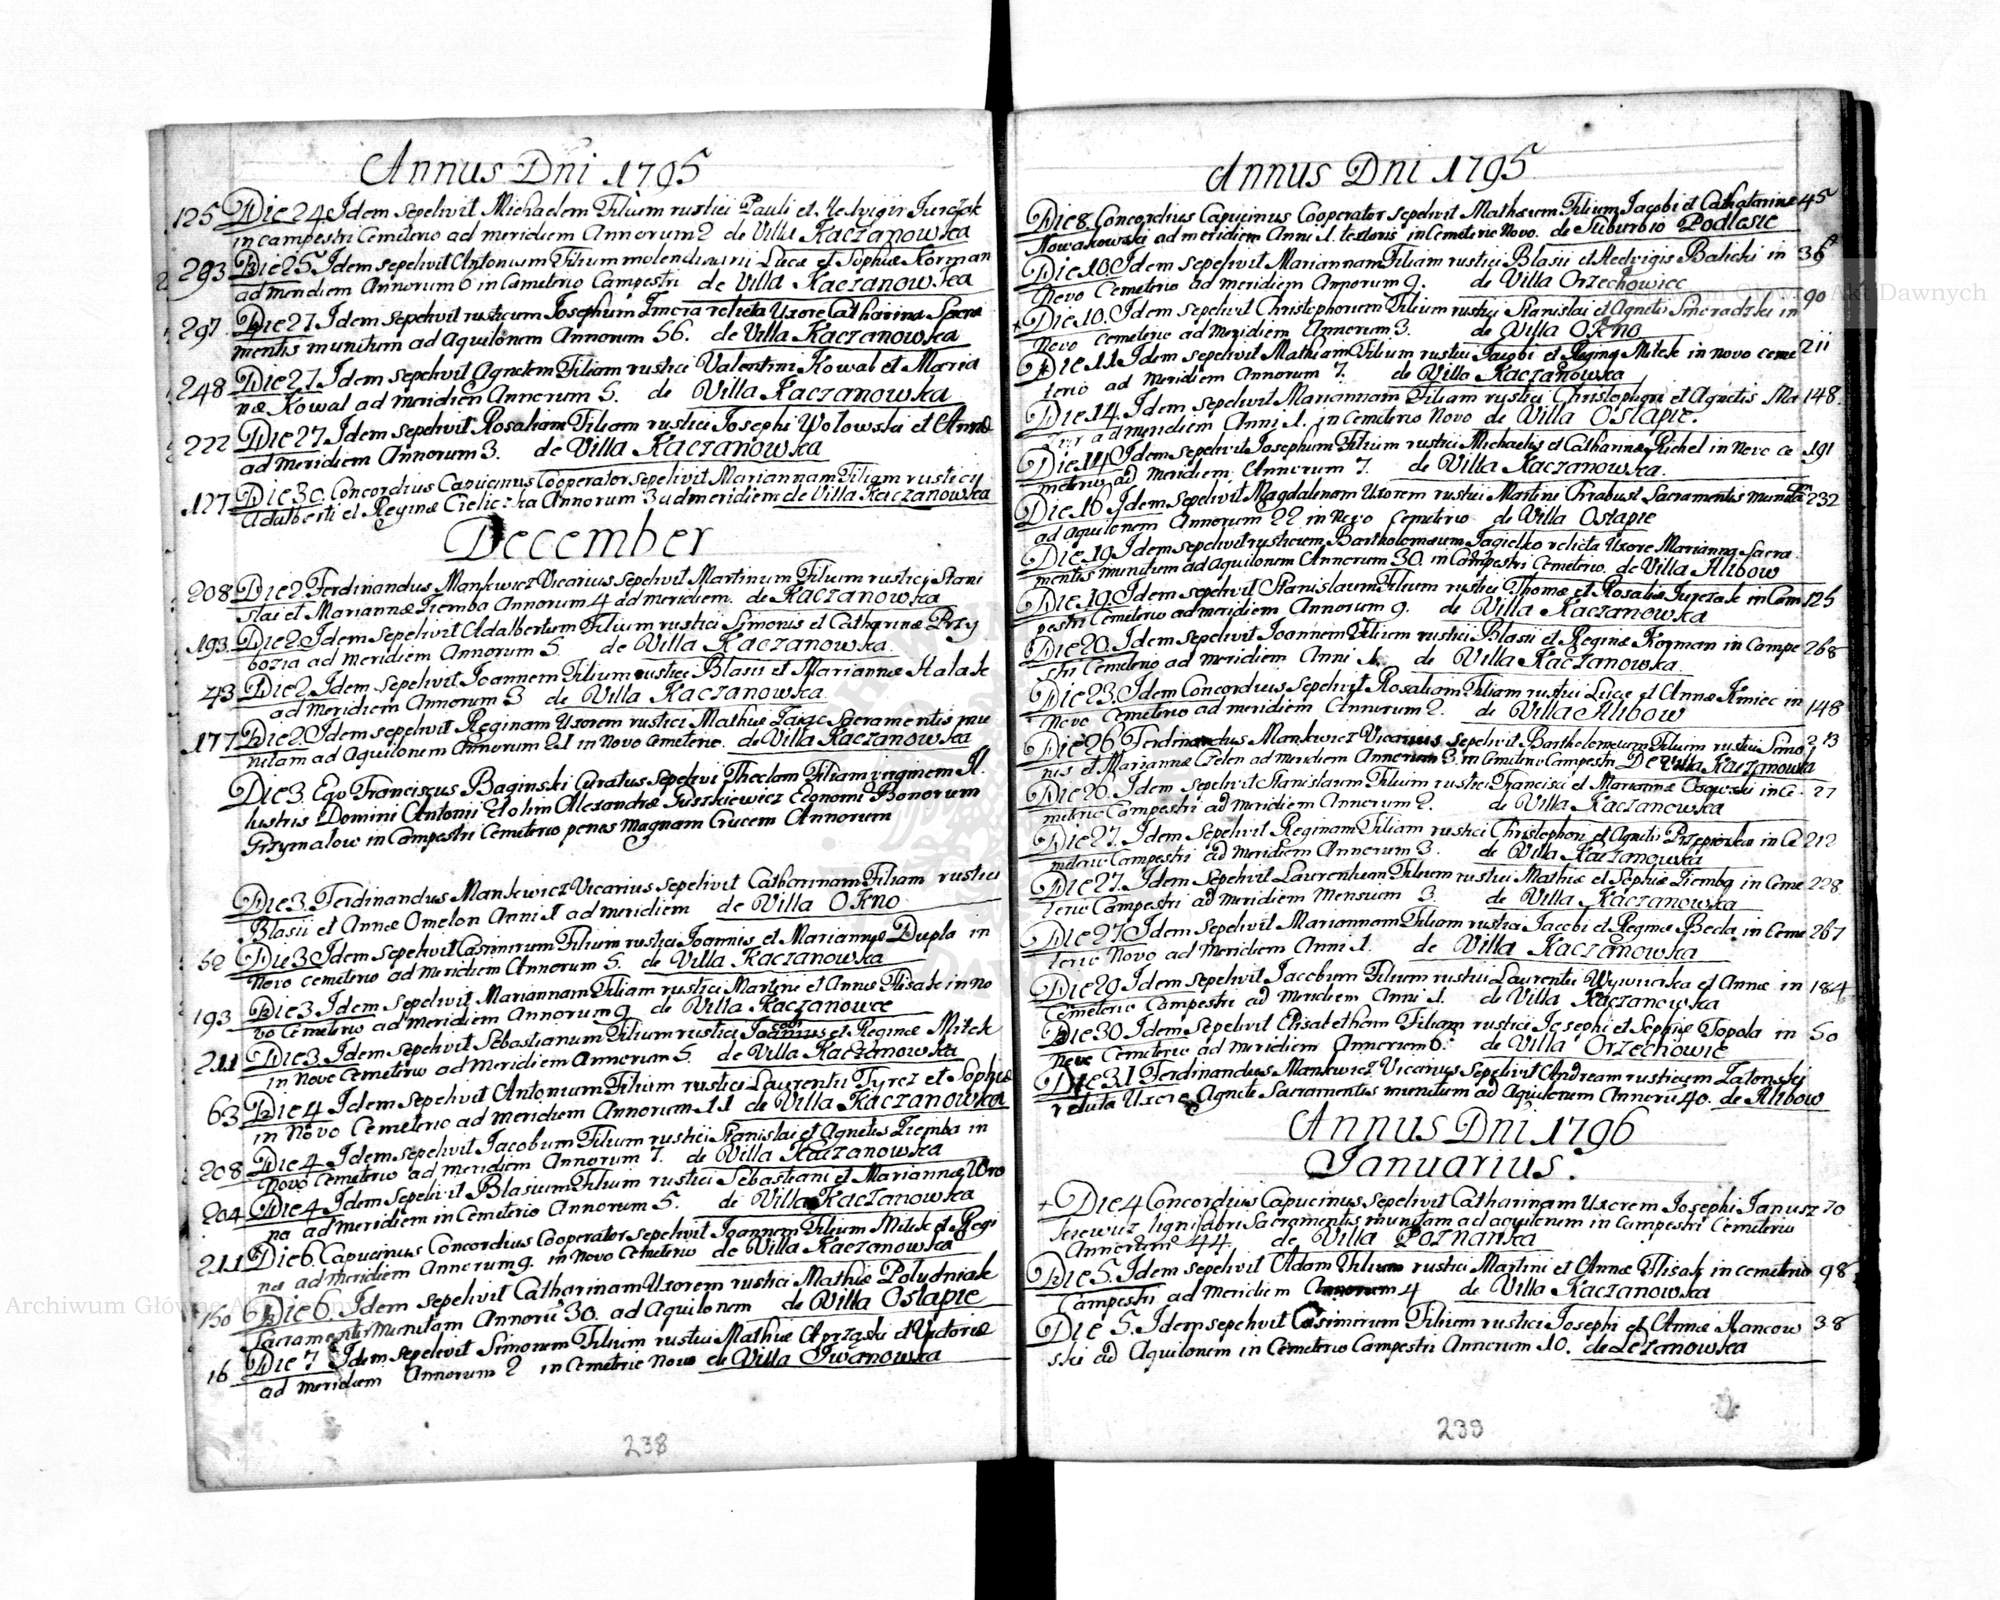 Annus Dni 1795
125 Die 24 Idem sepelivit Michaelem Filium rustici Pauli et Hedvigis Jurczak
in campestri Cemeterio ad meridiem Annorum 2 de Villa Kaczanowka
293 Die 25 Idem sepelivit Antonium Filium molendinarii Lucae et Sophiae Korman
ad meridiem Annorum 6 in Cameterio Campestri de Villa Kaczanowka
297 Die 27 Idem sepelivit rusticum Josephum relicta Uxore Catharina Sacra
mentis munitum ad Aquilonem Annorum 56. de Villa Kaczanowka
248 Die 27 Idem sepelivit Agnetem Filiam rustici Valentini Kowal et Maria
nae Kowal ad meridiem Annorum 5. de Villa Kaczanowka
222 Die 27 Idem sepelivit Rosaliam Filiam rustici Josephi Wolowski et Annae
ad Meridiem Annorum 3. de Villa Kaczanowka
127 Die 30. Concordius Capucinus Cooperator sepelivit Mariannam Filiam rusticy
Adalberti et Reginae Annorum 3 ad meridiem de Villa Kaczanowka
December
208 Die 2 Ferdinandus Mankwicz Vicarius sepelivit Martinum Filium rustici Stani
slai et Mariannae Ziemba Annorum 4 ad meridiem. de Kaczanowka
193 Die 2. Idem sepelivit Adalbertum Filium rustici Simonis et Catharinae Przy
bozia ad Meridiem Annorum 5 de Villa Kaczanowka.
43 Die 2 Idem sepelivit Joannem Filium rustici Blasii et Mariannae Halak
ad Meridiem Annorum 3 de Villa Kaczanowka
177 Die 2 Idem sepelivit Reginam Uxorem rustici Mathiae Sacramentis mu
nitam ad Aquilonem Annorum 21 in Novo Cemeterio. de Villa Kaczanowka
Die 3. Ego Franciscus Baginski Curatus Sepelivi Theclam Filiam virginem Il
lustris Domini Antonii et olim Alexandrae Puszkiewicz Economi Bonorum
Grzymalow in Campestri Cemeterio penes Magnam Crucem Annorum
Die 3. Ferdinandus Mankwicz Vicarius sepelivit Catharinam Filiam rustici
Blasii et Annae Omelon Anni 1 ad meridiem de Villa Okno
52 Die 3 Idem sepelivit Casimirum Filium rustici Joannis et Mariannae Dupla in
Novo cemeterio ad Meridiem Annorum 5. de Villa Kaczanowka
193 Die 3 Idem sepelivit Mariannam Filiam rustici Martini et Annae Flisak in No
vo Cemeterio ad Meridiem Annorum 9 de Villa Kaczanowce
211 Die 3. Idem sepelivit Sebastianum Filium rustici et Reginae Mitek
in Novo Cemeterio ad Meridiem Annorum 5. de Villa Kaczanowka
63 Die 4 Idem sepelivit Antonium Filium rustici Laurentii Tyrcz et Sophiae
in Novo Cemeterio ad Meridiem Annorum 11 de Villa Kaczanowka
208 Die 4 Idem sepelivit Jacobum Filium rustici Stanislai et Agnetis Ziemba in
Novo Cemeterio ad Meridiem Annorum 7. de Villa Kaczanowka
204 Die 4 Idem sepelivit Blasium Filium rustici Sebastiani et Mariannae Wro
na ad Meridiem in Cemeterio Annorum 5. de Villa Kaczanowka
211 Die 6. Capucinus Concordius Cooperator sepelivit Joannem Filium Mitek et Regi
nae ad Meridiem Annorum 9. in Novo Cemeterio de Villa Kaczanowka
150 Die 6. Idem sepelivit Catharinam Uxorem rustici Mathiae Poludniak
Sacramentis Munitam Annoru 30. ad Aquilonem de Villa Ostapie
16 Die 7 Idem sepelivit Simonem Filium rustici Mathiae et Victoriae
ad meridiem Annorum 2 in Cemeterio Novo de Villa Iwanowka
238
Annus Dni 1795
Die 8 Concordius Capucinus Cooperator sepelivit Mathaeum Filium Jacobi et Catharinae 45
Nowakowski ad meridiem Anni 1. textoris in Cemeterio Novo. de Suburbio Podlesie
Die 10. Idem sepelivit Mariannam Filiam rustici Blasii et Hedvigis Balicki in 36
Novo Cemeterio ad Meridiem Annorum 9. de Villa Orzechowiec
+ Die 10. Idem sepelivit Christophorum Filium rustici Stanislai et Agnetis Smeradzki in 90
Novo Cemeterio ad Meridiem Annorum 3. de Villa Okno
Die 11 Idem sepelivit Mathiam Filium rustici Jacobi et Reginae Mitek in novo ceme 211
terio ad Meridiem Annorum 7. de Villa Kaczanowka
Die 14. Idem sepelivit Mariannam Filiam rustici Christophori et Agnetis 148.
ad meridiem Anni 1. in Cemeterio Novo de Villa Ostapie.
Die 14 Idem sepelivit Josephum Filium rustici Michaelis et Catharinae Kichel in Novo Ce 191
meterio ad Meridiem Annorum 7. de Villa Kaczanowka.
Die 16 Idem sepelivit Magdalenam Uxorem rustici Martini Chrabust Sacramentis munita 232
ad aquilonem Annorum 22 in Novo Cemeterio de Villa Ostapie
Die 19 Idem sepelivit rusticum Bartholomaeum Jagielko relicta Uxore Marianna Sacra
mentis munitum ad aquilonem Annorum 30. in Campestri Cemeterio. de Villa Alibow
Die 19. Idem sepelivit Stanislaum Filium rustici Thomae et Rosaliae Jurczak in Cam 125
pestri Cemeterio ad meridiem Annorum 9. de Villa Kaczanowka
Die 20. Idem sepelivit Joannem Filium rustici Blasii et Reginae Korman in Campe 268
stri Cemeterio ad Meridiem Anni 1. de Villa Kaczanowka.
Die 23. Idem Concordius sepelivit Rosaliam Filiam rustici Lucae et Annae Kmiec in
Novo Cemeterio ad meridiem Annorum 2. de Villa Alibow 148
Die 26 Ferdinandus Mankwicz Vicarius sepelivit Bartholomeum Filium rustici Simo 213
nis et Mariannae ad Meridiem Annorum 3. in Cemeterio Campestri De Villa Kaczanowka
Die 26. Idem sepelivit Stanislaum Filium rustici Francisci et Mariannae in Ce 27
meterio Campestri ad Meridiem Annorum 2. de Villa Kaczanowka
Die 27. Idem sepelivit Reginam Filiam rustici Christophori et Agnetis Przepiorka in Ce 212
meterio Campestri ad Meridiem Annorum 3. de Villa Kaczanowka
Die 27. Idem sepelivit Laurentium Filium rustici Mathiae et Sophiae Ziemba in Ceme 228
terio Campestri ad Meridiem Mensium 3. de Villa Kaczanowka
Die 27 Idem sepelivit Mariannam Filiam rustici Jacobi et Reginae Beda in Ceme 267
terio Novo ad Meridiem Anni 1. de Villa Kaczanowka
Die 29 Idem sepelivit Jacobum Filium rustici Laurentii et Annae in 184
Cemeterio Campestri ad Meridiem Anni 1. de Villa Kaczanowka
Die 30 Idem sepelivit Elisabetham Filiam rustici Josephi et Sophiae Topola in 50
Novo Cemeterio ad Meridiem Annorum 6. de Villa Orzechowie
Die 31 Ferdinandus Mankwicz Vicarius Sepelivit Andream rusticum Zatonski
relicta Uxore Agnete Sacramentis munitum ad Aquilonem Annoru 40. de Alibow
Annus Dni 1796
Januarius.
+ Die 4 Concordius Capucinus sepelivit Catharinam Uxorem Josephi Janusz 70
kiewicz lignifabri Sacramentis munitam ad aquilonem in Campestri Cemeterio
Annorum 44. de Villa Poznanka
Die 5. Idem sepelivit Adam Filium rustici Martini et Annae Flisak in cemeterio 98
Campestri ad meridiem Annorum 4 de Villa Kaczanowka
Die 5. Idem sepelivit Casimirum Filium rustici Josephi et Annae Kancow 38
ski ad Aquilonem in Cemeterio Campestri Annorum 10. de Lezanowka
239
Archiwum Główne Akt Dawnych